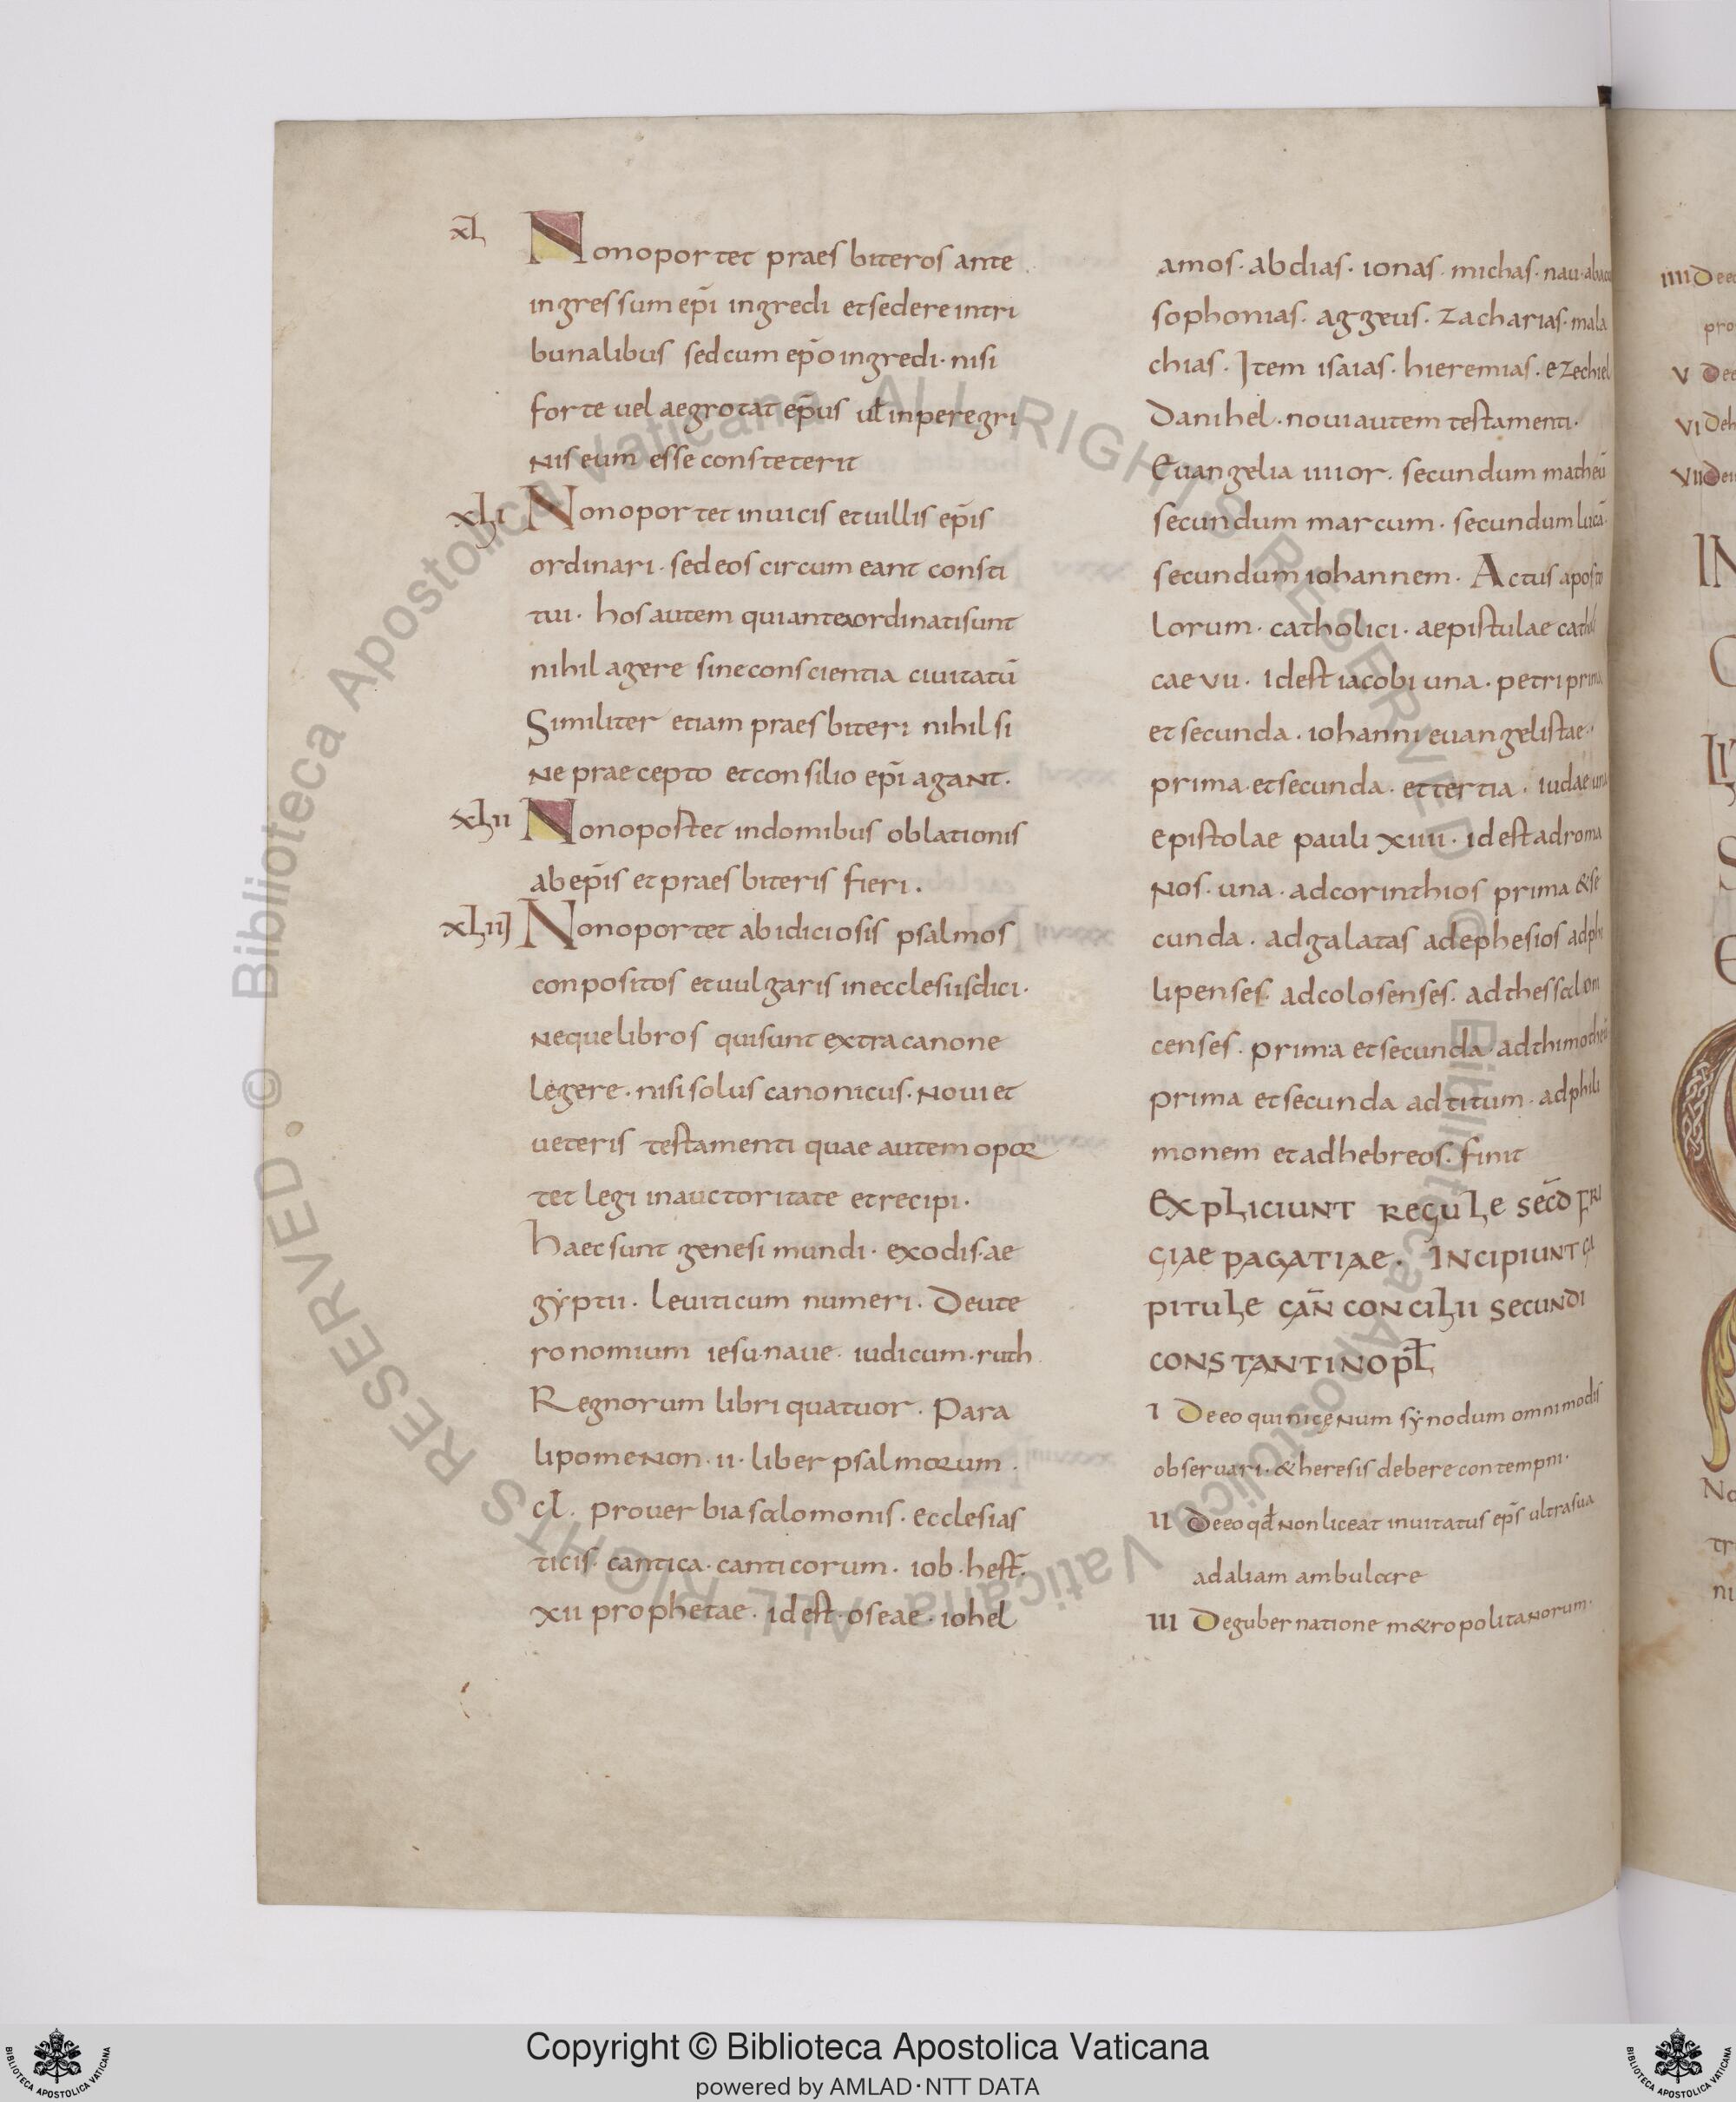 xl Nonoportet praesbiteros ante
ingressum ep̄i ingredi etsedere intri
bunalibus sedcum ep̄o ingredi· nisi
forte uel aegrotat ep̄us ul̄ inperegri
nis eum esse constеterit
xli Nonoportet inuicis etuillis ep̄is
ordinari· sedeos circumeant consti
tui· hos autem quiantea ordinatisunt
nihil agere sineconscientia ciuitatū
Similiter etiam praesbiteri nihil si
ne praecepto etconsilio ep̄i agant·
xlii Nonopostet indomibus oblationis
abep̄is etpraesbiteris fieri·
xliii Nonoportet abidiciosis psalmos
conpositos etuulgaris inecclesiisdici·
nequelibros quisunt extracanone
legere· nisisolus canonicus· nouiet
ueteris testamenti quae autem opor
tet legi inauctoritate etrecipi·
haecsunt genesi mundi· exodis·ae
gẏptii· leuiticum numeri· Deute
ronomium iesu·naue· iudicum·ruth
Regnorum libri quatuor· Para
lipomenon·ii·liber psalmorum·
cl· prouerbia salomonis· ecclesias
ticis· cantica·canticorum· iob·hest̄·
xii prophetae· idest·oseae·iohel
amos·abdias·ionas·michas·nau·abacu
sophonias· aggeus· zacharias·mala
chias· Item isaias· hieremias· ezechiel
Danihel·nouiautem testamenti·
Euangelia iiiior· secundum matheū
secundum marcum· secundum lucā·
secundum iohannem· Actus aposto
lorum· catholici· aepistulae catholi
cae vii· idest iacobi una· petri prima
et secunda· iohanni euangelistae·
prima·etsecunda· ettertia· iudae una
epistolae pauli xiiii· idest adroma
nos· una· adcorinthios prima &se
cunda· adgalatas adephesios adphi
lipenses· adcolosenses· adthessaloni
censes· prima etsecunda·adthimotheū
prima etsecunda adtitum·adphili
monem etadhebreos· finit
Expliciunt regule sec̄d fri
giae pagatiae· Incipiunt ca
pitule can̄ concilii secundi
constantinopl̄
I Deeo quinicenum sẏnodum omnimodis
obseruari·&heresis debere contempni·
II Deeo qd̄ nonliceat inuitatus ep̄s ultrasua
adaliam ambulare
III Degubernatione m&ropolitanorum·
Copyright © Biblioteca Apostolica Vaticana
powered by AMLAD·NTT DATA